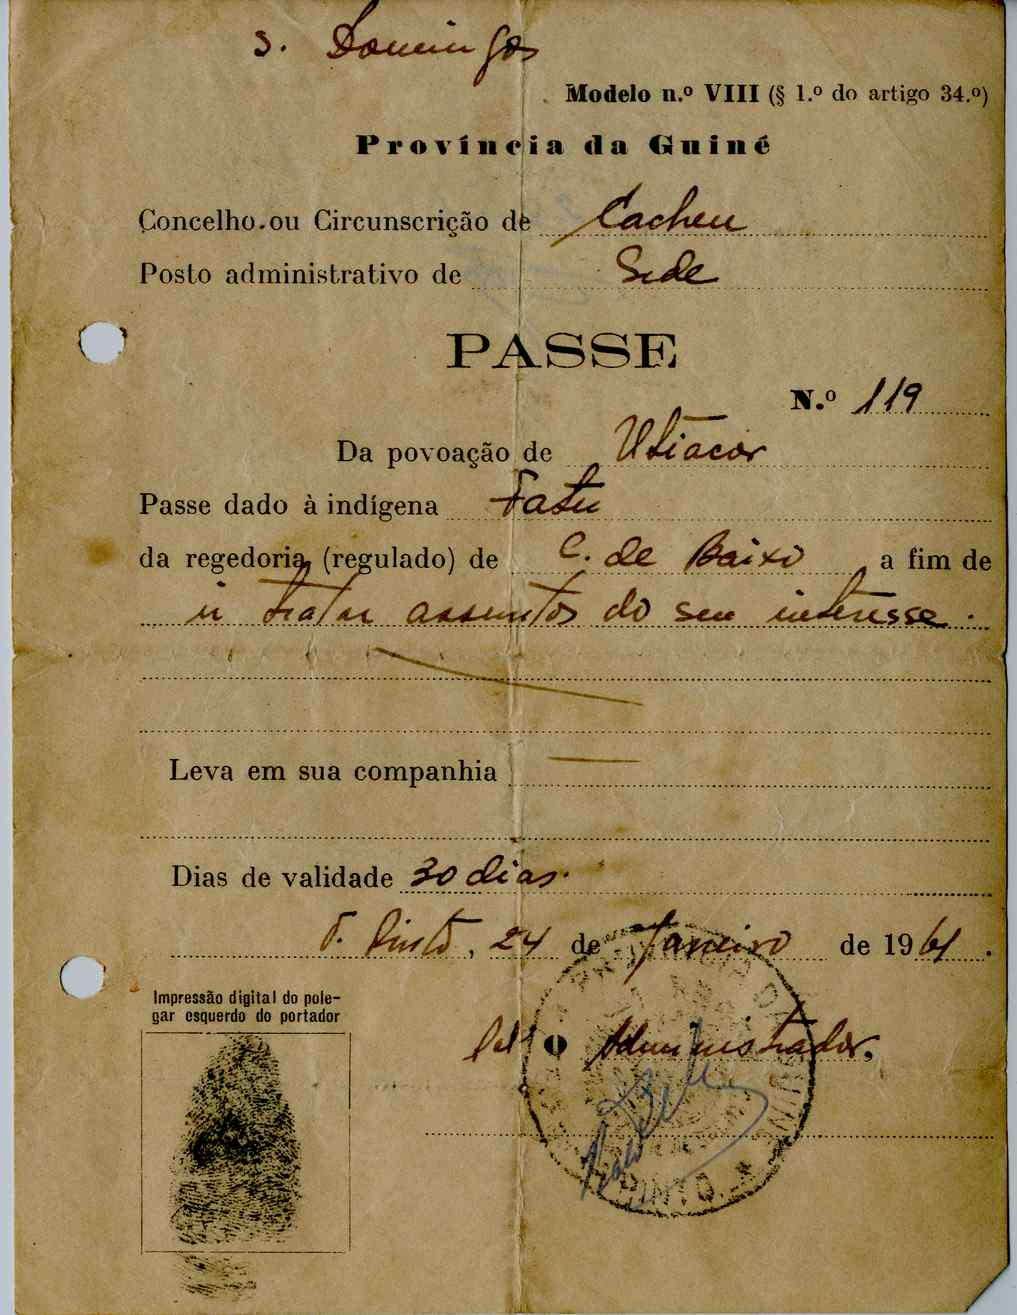 S. Domingos
Modelo n.º VIII (§ 1.º do artigo 34.º)
Província da Guiné
Concelho ou Circunscrição de Cacheu
Posto administrativo de Sede
PASSE
N.º 119
Da povoação de Utiacor
Passe dado à indígena Fatu
da regedoria (regulado) de C. de Baixo a fim de
ir tratar assuntos do seu interesse.
Leva em sua companhia
Dias de validade 30 dias.
T. Pinto, 24 de Janeiro de 1961.
Impressão digital do pole-
gar esquerdo do portador
Pel' O Administrador,
PINTO